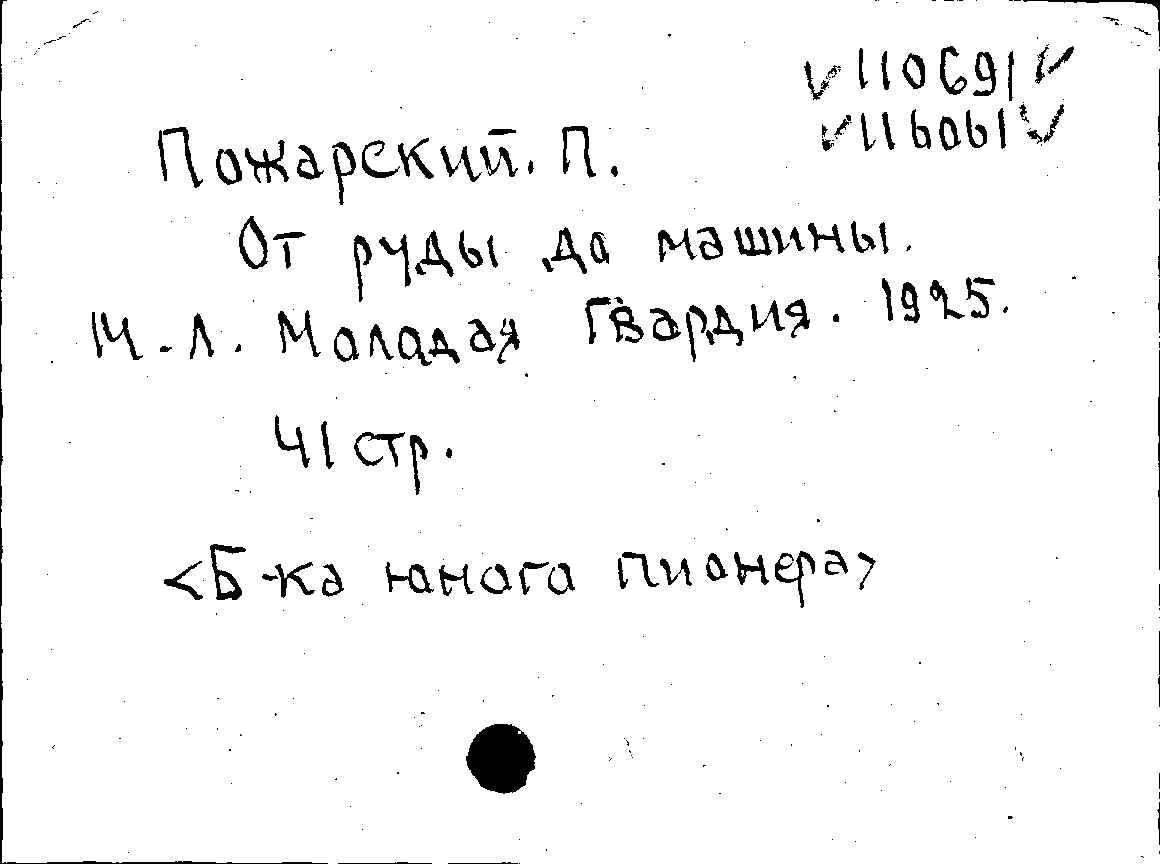 110691
116061
Пожарский. П.
От руды до машины.
М.-Л. Молодая Гвардия. 1925.
41 стр.
<Б-ка юного пионера>